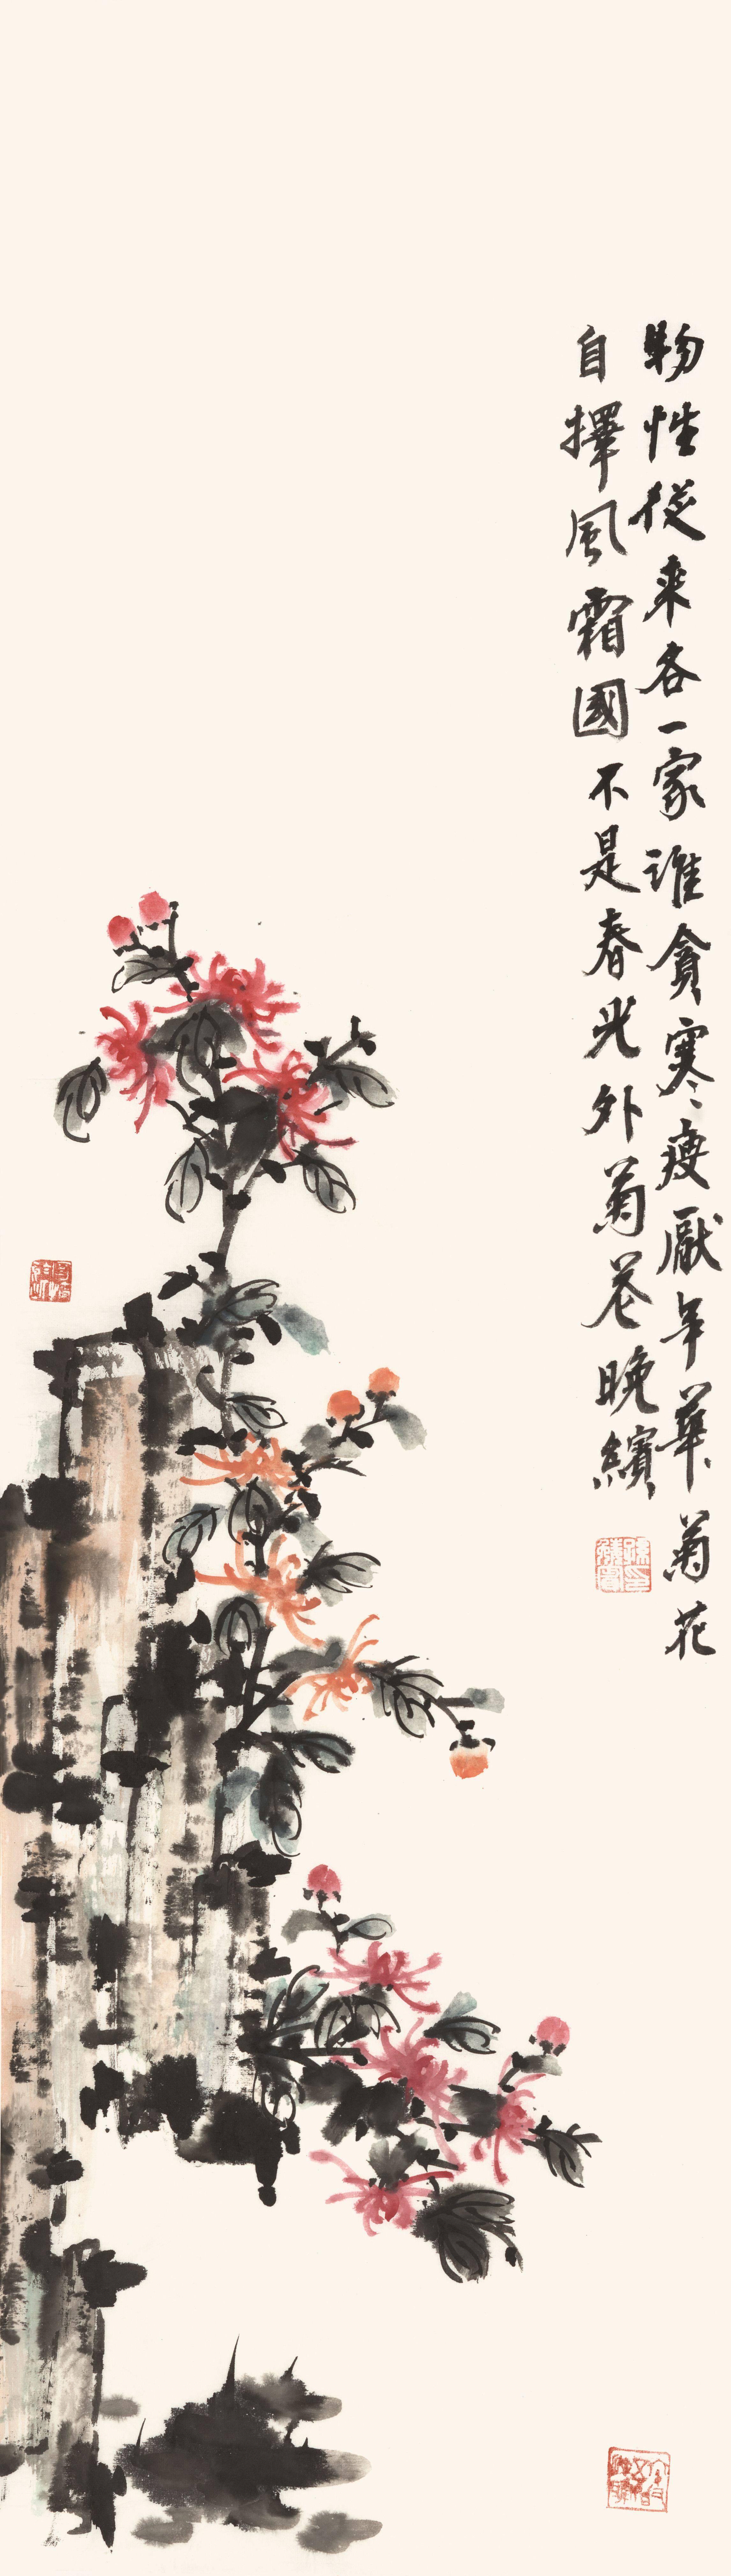 物性從来各一家誰貪寒瘦厭年華菊花
自擇風霜國不是春光外菊花晚繽